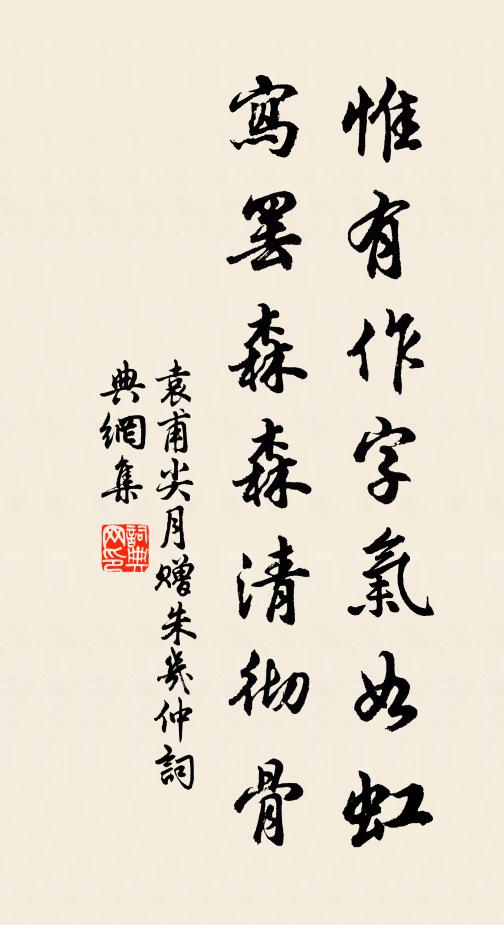 惟有作字氣如虹
寫罷森森清彻骨
袁甫尖月赠朱幾仲詞
典網集
詞典网印